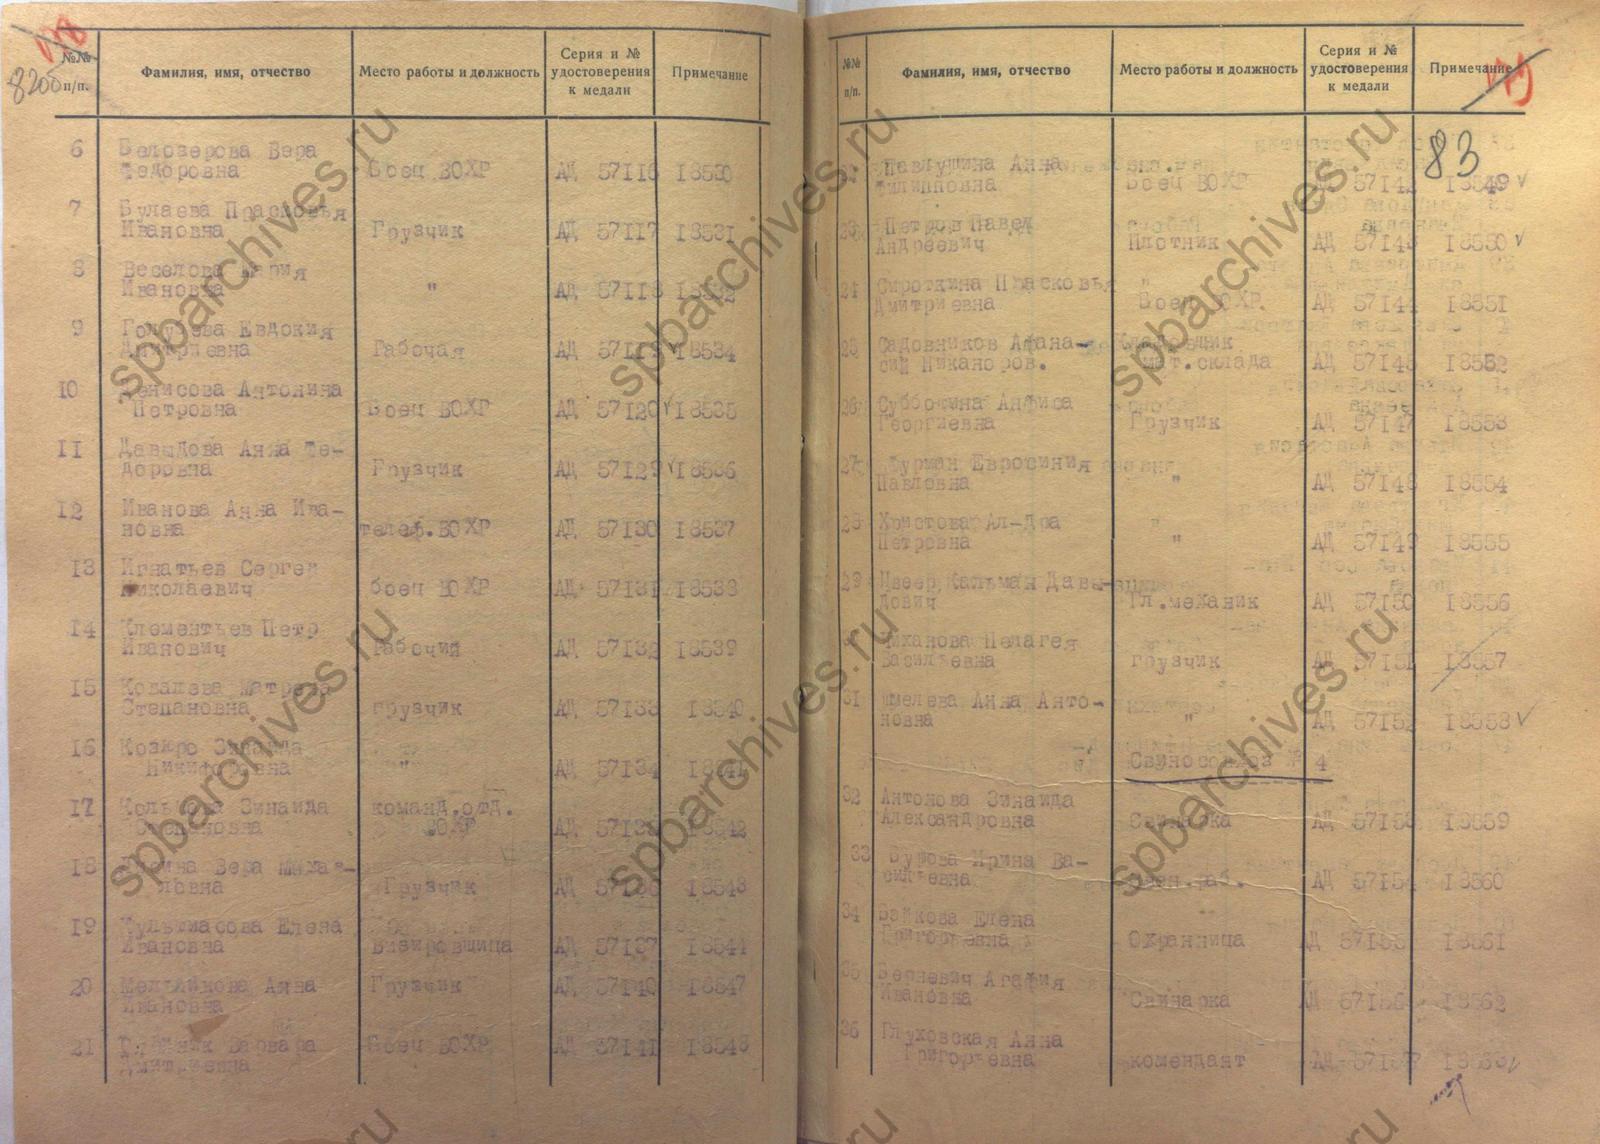 8206
№№ п/п.
Фамилия, имя, отчество
Место работы и должность
Серия и № удостоверения к медали
Примечание
6 Белозерова Вера Федоровна Боец ВОХР АД 57116 18530
7 Булаева Прасковья Ивановна Грузчик АД 57117 18531
8 Веселова Мария Ивановна " АД 57118 18532
9 Голубева Евдокия Дмитриевна Рабочая АД 57119 18534
10 Денисова Антонина Петровна Боец ВОХР АД 57120 18535
11 Давыдова Анна Фе-
доровна Грузчик АД 57129 18536
12 Иванова Анна Ива-
новна телеф.ВОХР АД 57130 18537
13 Игнатьев Сергей Николаевич боец ВОХР АД 57131 18538
14 Клементьев Петр Иванович Рабочий АД 57132 18539
15 Ковалева Матрена Степановна грузчик АД 57133 18540
16 Козюро Зинаида Никифоровна " АД 57134 18541
17 Зинаида Степановна команд.отд. ВОХР АД 57135 18542
18 Вера Михай-
ловна Грузчик АД 57136 18543
19 Елена Ивановна Визировщица АД 57137 18544
20 Мельникова Анна Ивановна Грузчик АД 57140 18547
21 Варвара Дмитриевна Боец ВОХР АД 57141 18548
№№ п/п.
Фамилия, имя, отчество
Место работы и должность
Серия и № удостоверения к медали
Примечание
83
Павлушина Анна Филипповна Боец ВОХР АД 57142 18549
23 Петров Павел Андреевич Плотник АД 57143 18550
24 Сироткина Прасковья Дмитриевна " Боец ВОХР. АД 57144 18551
25 Садовников Афана-
сий Никаноров. Кладовщик мат.склада АД 57145 18552
26 Субботина Анфиса Георгиевна Грузчик АД 57147 18553
27 Фурман Евросиния Павловна " АД 57148 18554
28 Христова Ал-дра Петровна " АД 57149 18555
29 Цвеер Кальман Давы-
дович Гл.механик АД 57150 18556
Чиханова Пелагея Васильевна грузчик АД 57151 18557
31 Шмелева Анна Анто-
новна " АД 57152 18558
Свиносовхоз № 4
32 Антонова Зинаида Александровна Свинарка АД 57153 18559
33 Бурова Ирина Ва-
сильевна АД 57154 18560
34 Бойкова Елена Григорьевна Охранница АД 57155 18561
35 Агафия Ивановна Свинарка АД 57156 18562
36 Глуховская Анна Григорьевна комендант АД 57157 18563
spbarchives.ru
spbarchives.ru
spbarchives.ru
spbarchives.ru
spbarchives.ru
spbarchives.ru